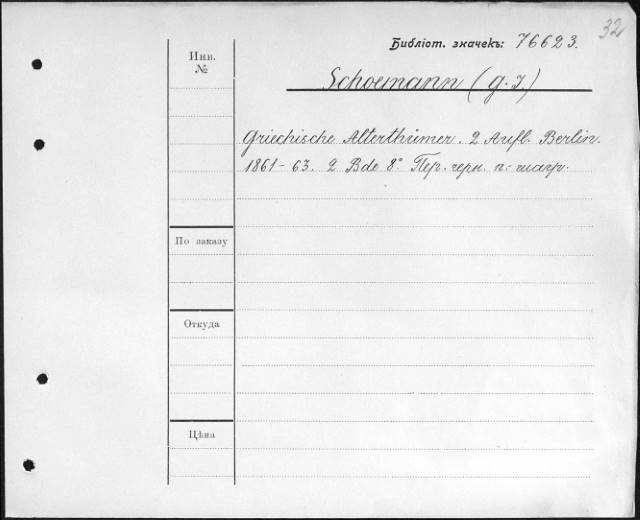 32
Библіот. значекъ: 76623.
Инв. №
Schoemann (g. J.)
Griechische Alterthümer. 2 Aufl. Berlin.
1861-63. 2 Bde 8° Пер. черн. п.-шагр.
По заказу
Откуда
Цѣна